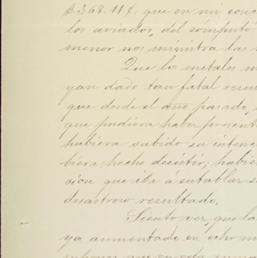 $368.11 f. que en mi conc
los aviados, del cómputo
menor nos ministra las
Que los metales n
yan dado tan fatal resu
que desde el año pasado,
que pudiera haber
hubiera subido su
biera hecho desistir;
cion que iba á entablar s
desastroso resultado.
Siento ver que la
ya aumentado en otro m